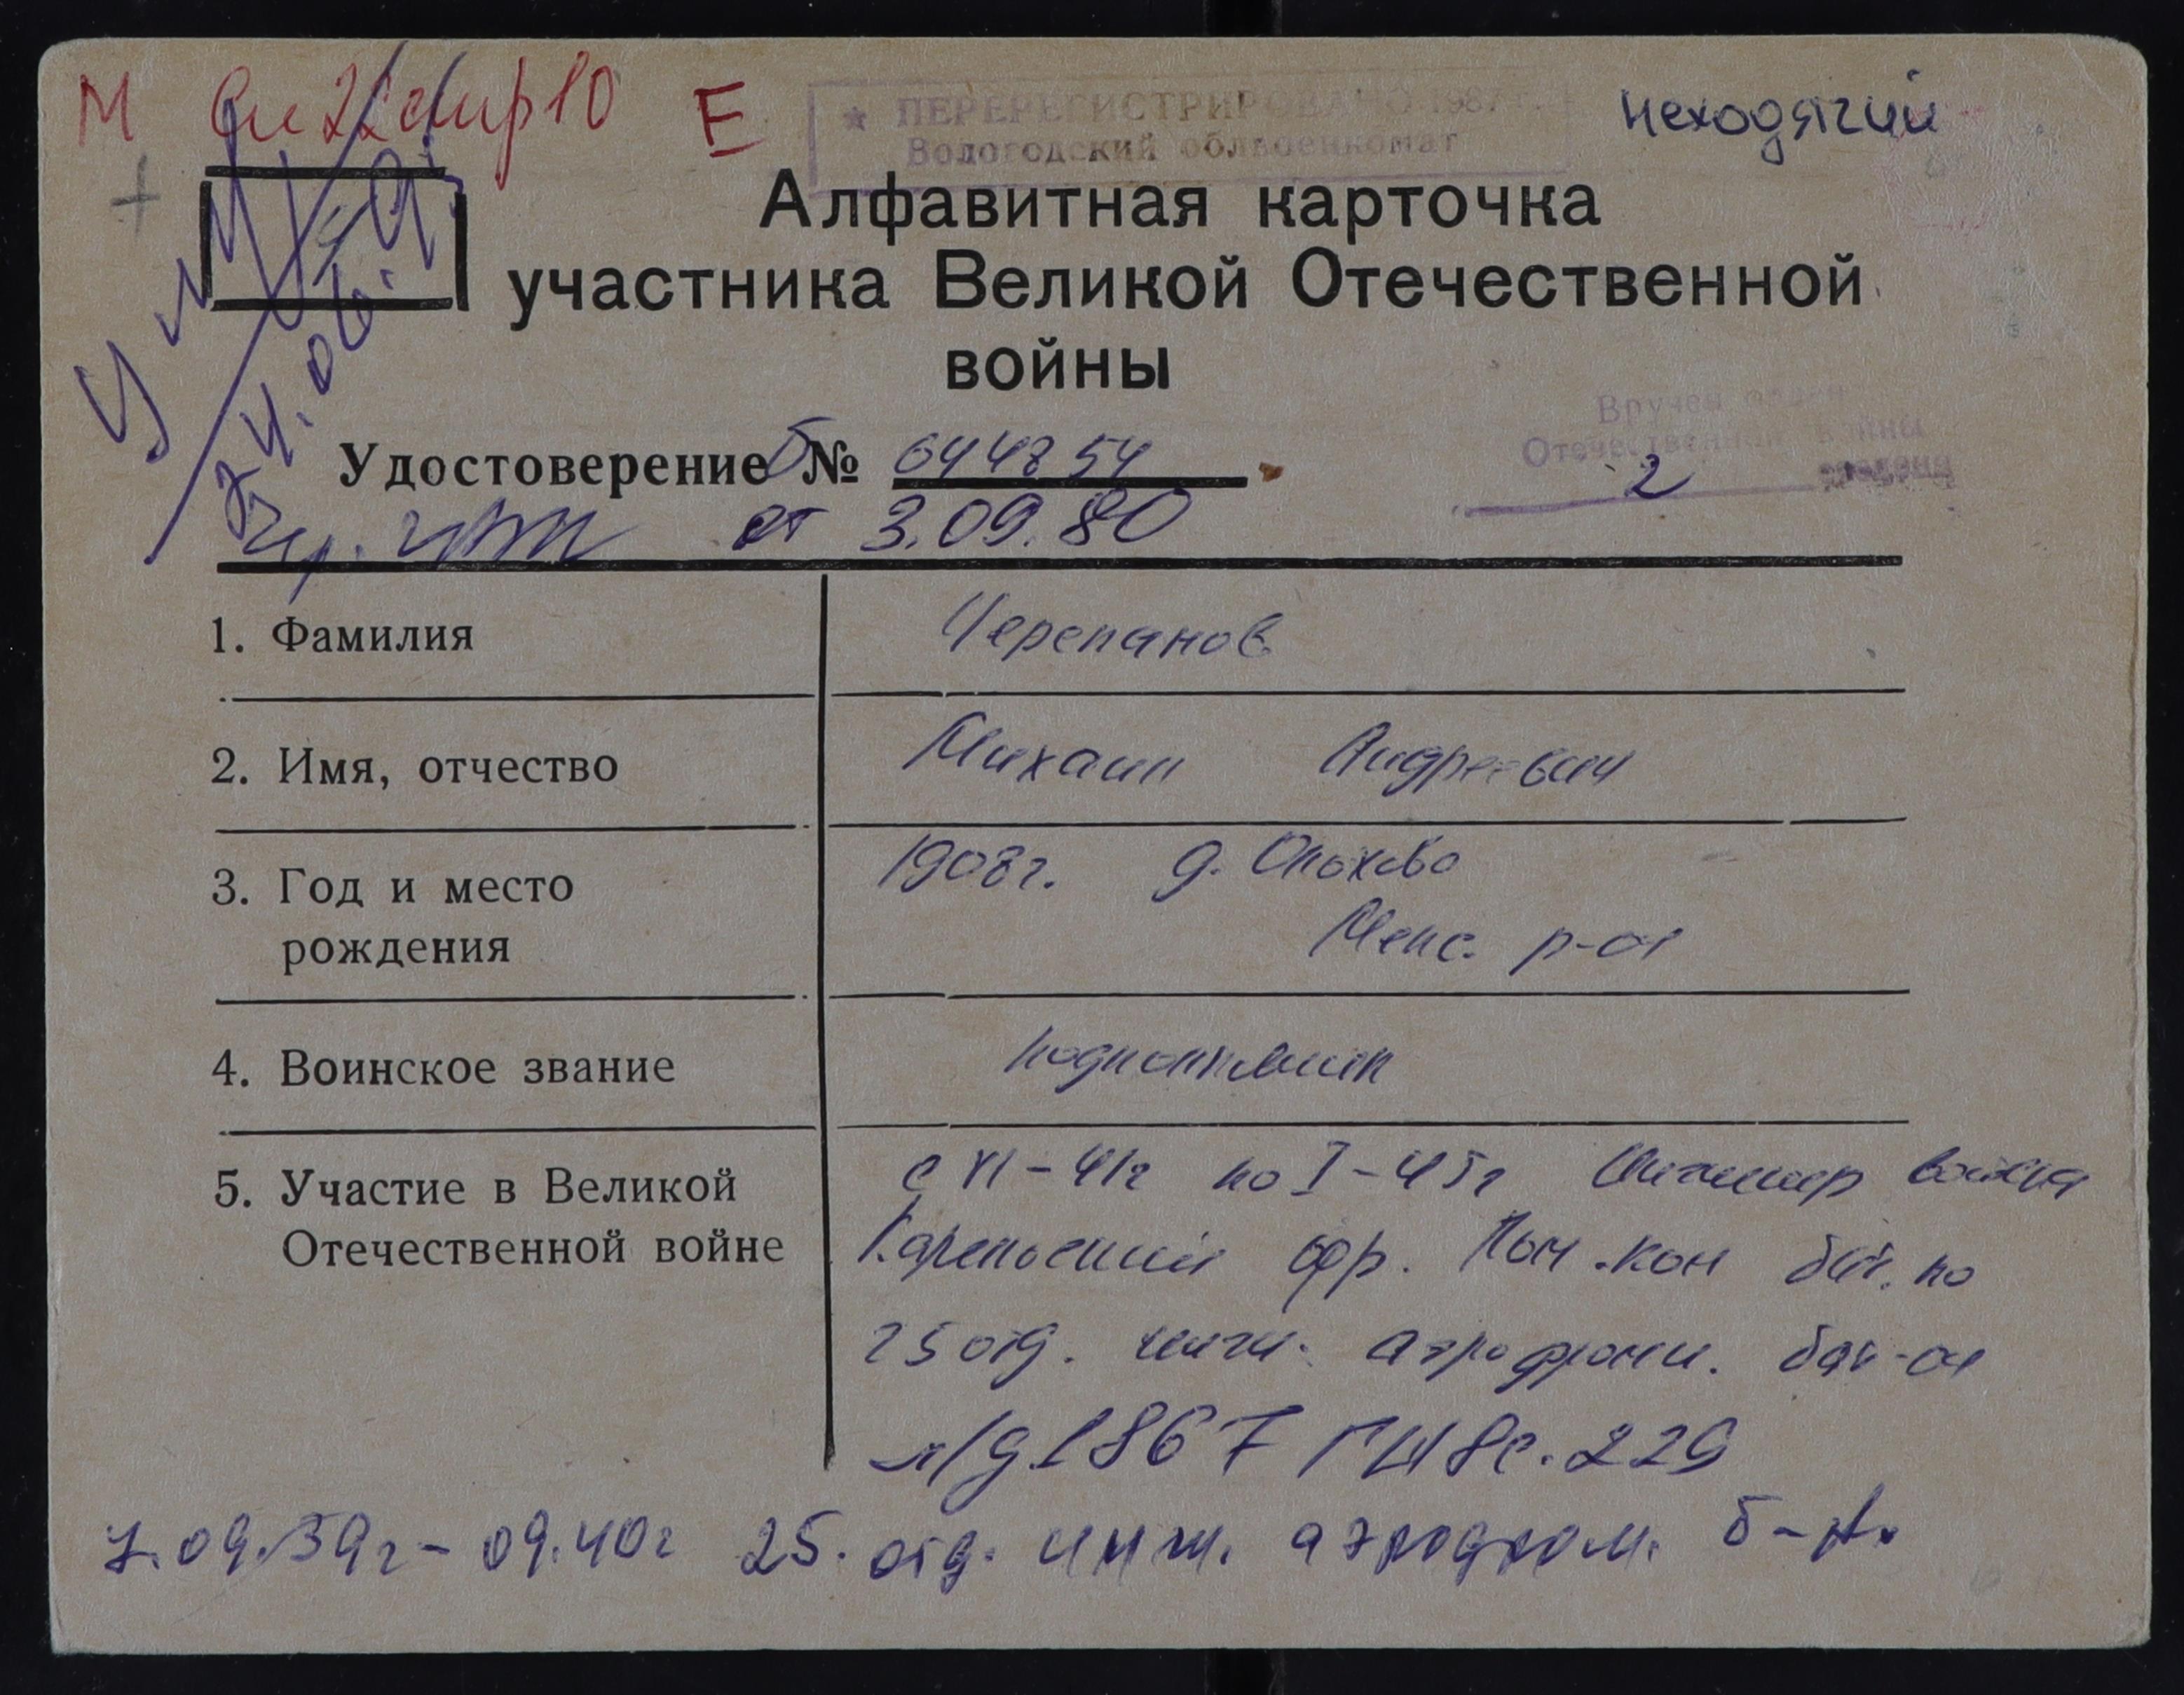 М E
★ ПЕРЕРЕГИСТРИРОВАНО 1987 г.
Вологодский облвоенкомат
неходячий
Алфавитная карточка
участника Великой Отечественной
войны
Вручен орден
Отечественной войны
2 степени
Удостоверение Б № 644854
от 3.09.80
1. Фамилия Черепанов
2. Имя, отчество Михаил Андреевич
3. Год и место 1908 г. д.
рождения р-он
4. Воинское звание подполковник
5. Участие в Великой с XI-41г по I-45г Инженер
Отечественной войне Карельский фр. Пом. ком бат. по
25 отд. инж. аэродромн. бат-он
л/д 1867 ГШ 8 с. 229
09.39г - 09.40г 25. отд. инж. аэродром. б-н.